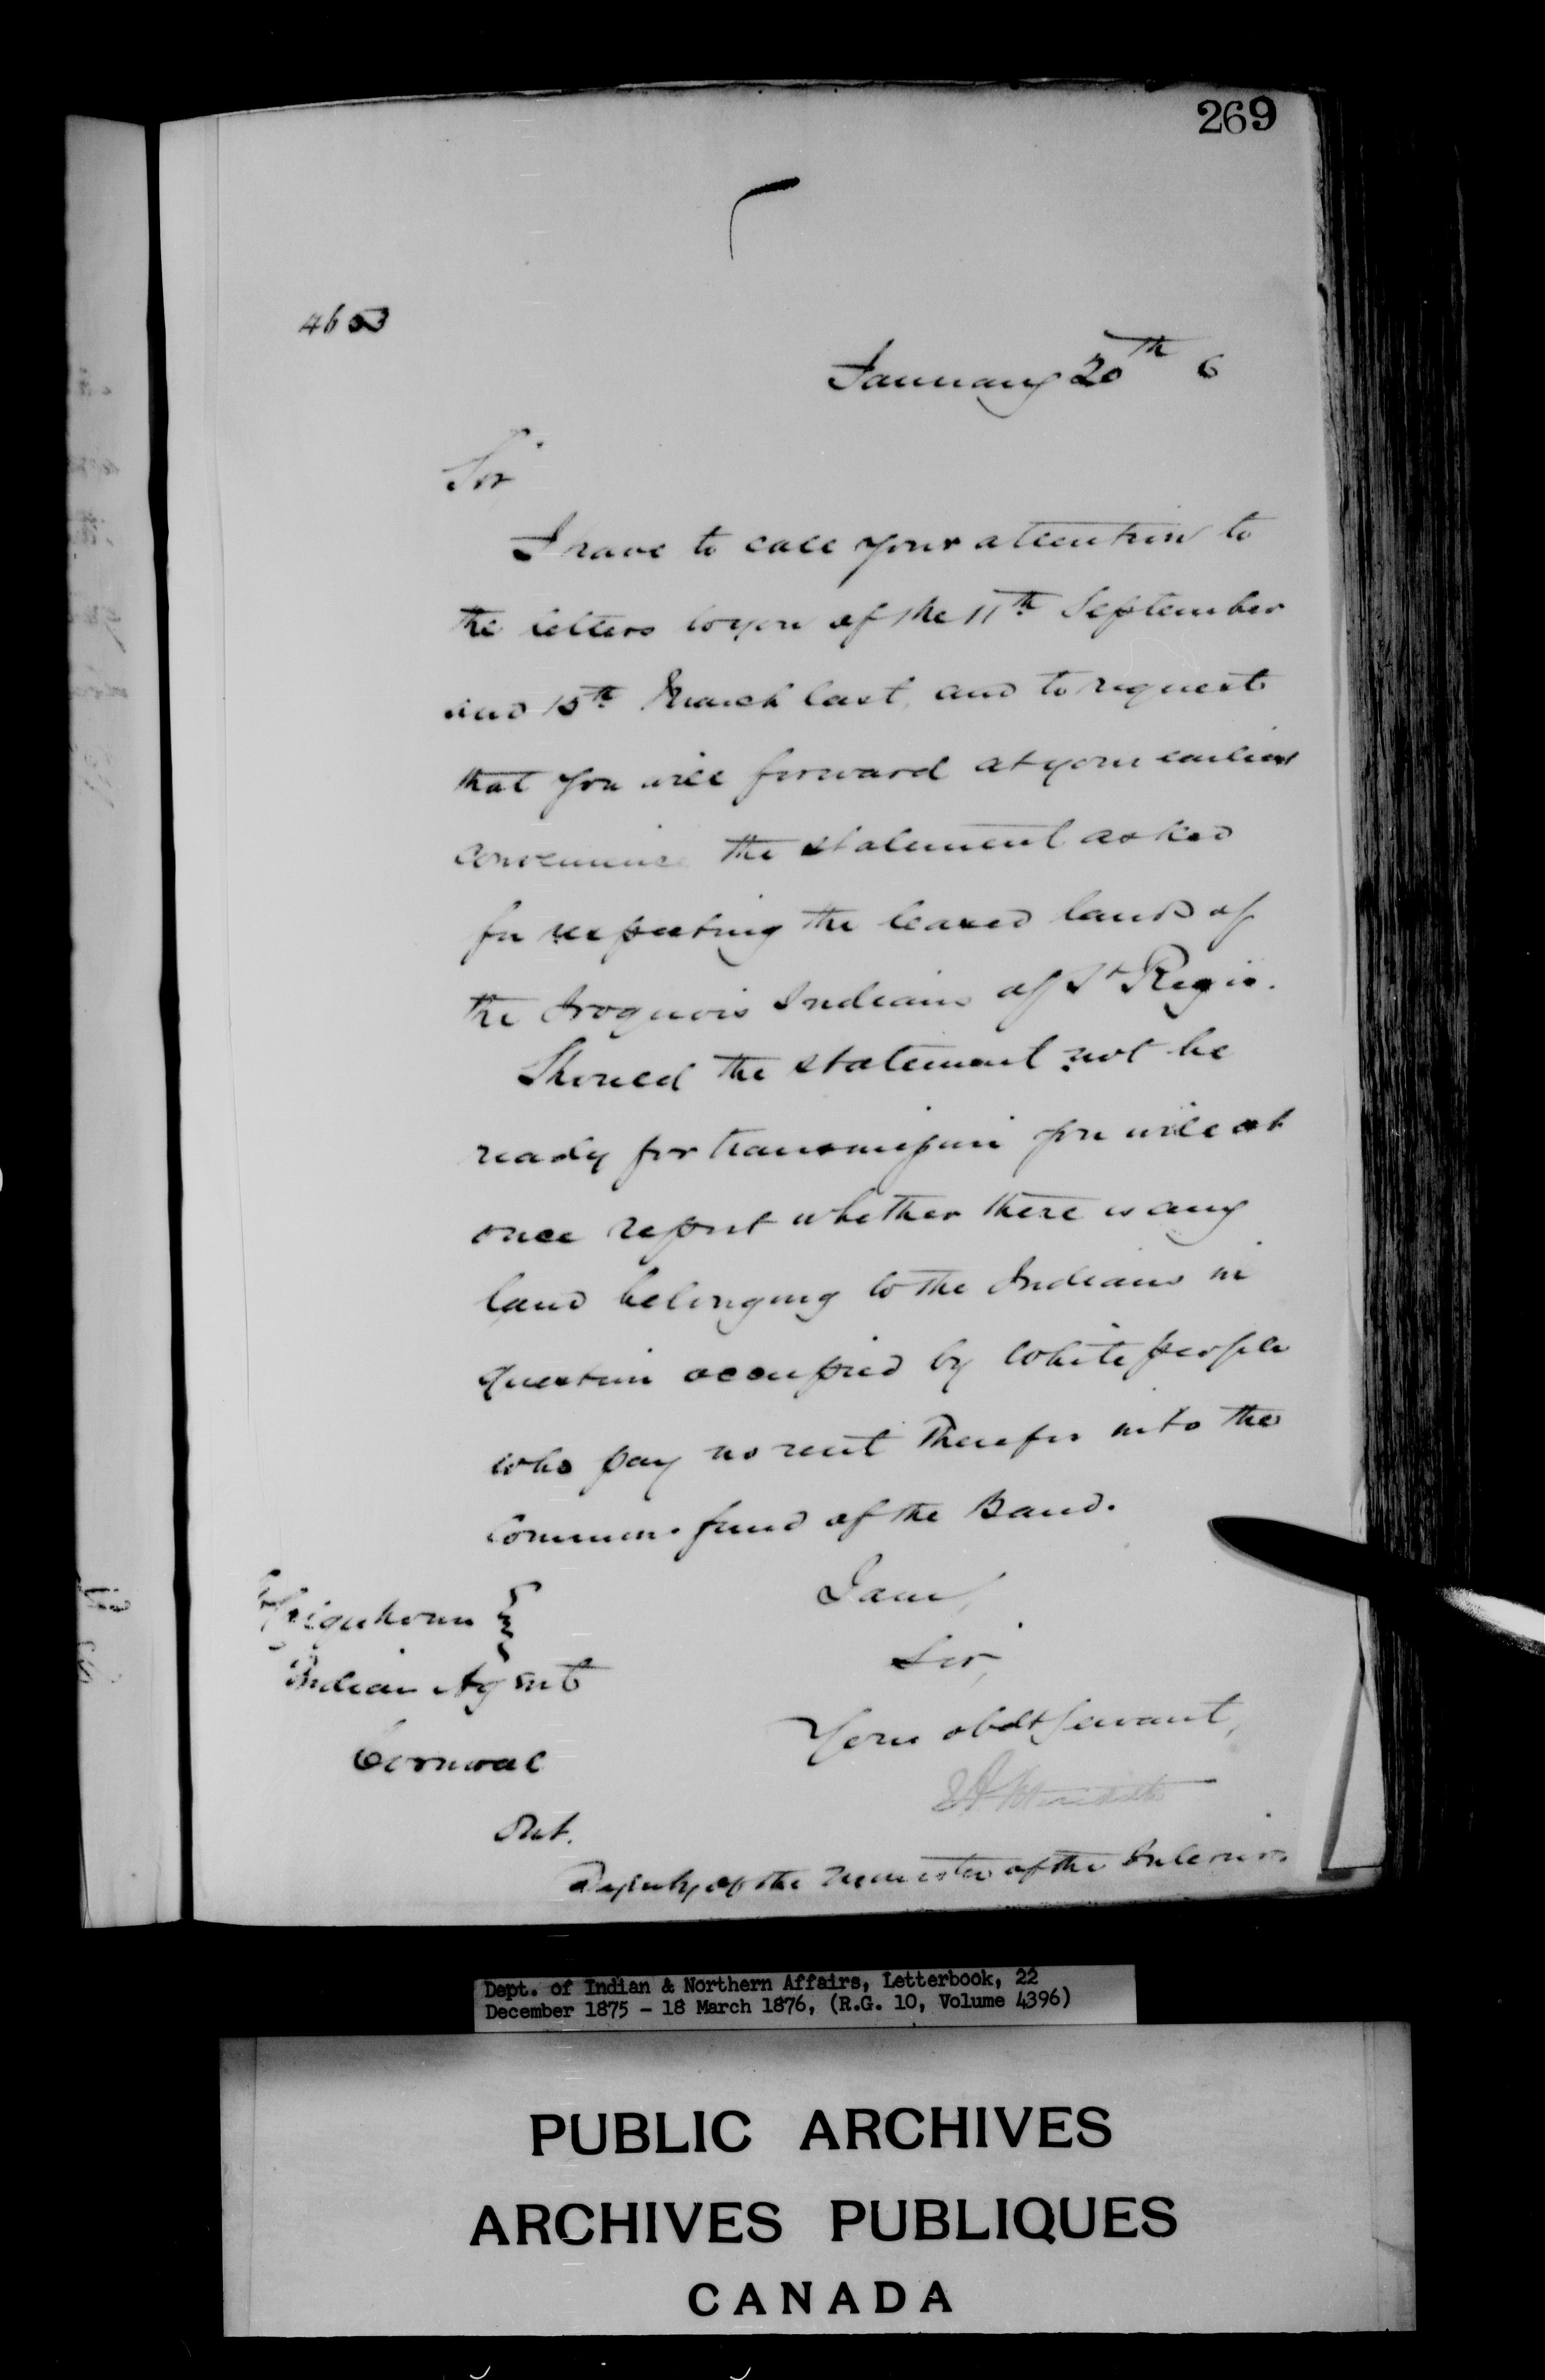 269
4653
January 20th 6
Sir
I have to call your attention to
the letters to you of the 11th September
and 15th March last, and to request
that you will forward at your earliest
convenience the statement asked
for respecting the leased lands of
the Iroquois Indians of St Regis.
Should the statement not be
ready for transmission you will at
once report whether there is any
land belonging to the Indians in
question occupied by White people
who pay no rent therefor into the
common fund of the Band.
I am,
Sir,
Your obdt servant,
Indian Agent
Cornwall
Ont.
Deputy of the Minister of the Interior.
Dept. of Indian & Northern Affairs, Letterbook, 22
December 1875 - 18 March 1876, (R.G. 10, Volume 4396)
PUBLIC ARCHIVES
ARCHIVES PUBLIQUES
CANADA